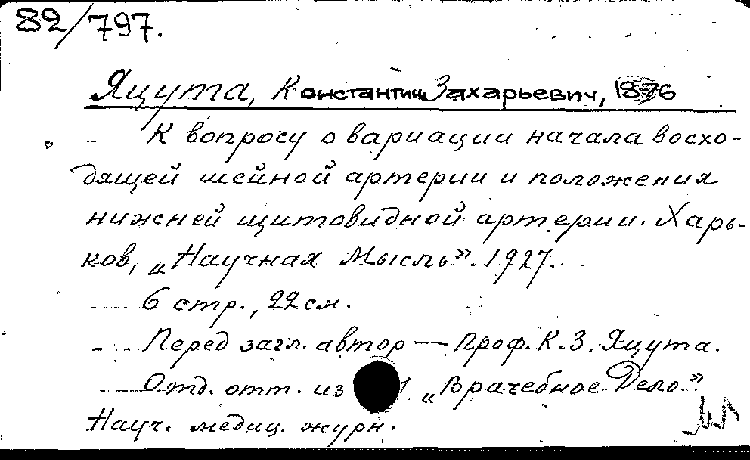 82/797.
Яцута, Константин Захарьевич, 1876
К вопросу о вариации начала восхо-
дящей шейной артерии и положения
нижней щитовидной артерии. Харь-
ков, „Научная Мысль”. 1927.
6 стр., 22 см.
Перед загл. автор — проф. К. З. Яцута.
Отд. отт. из „Врачебное Дело.”
Науч. медиц. журн.